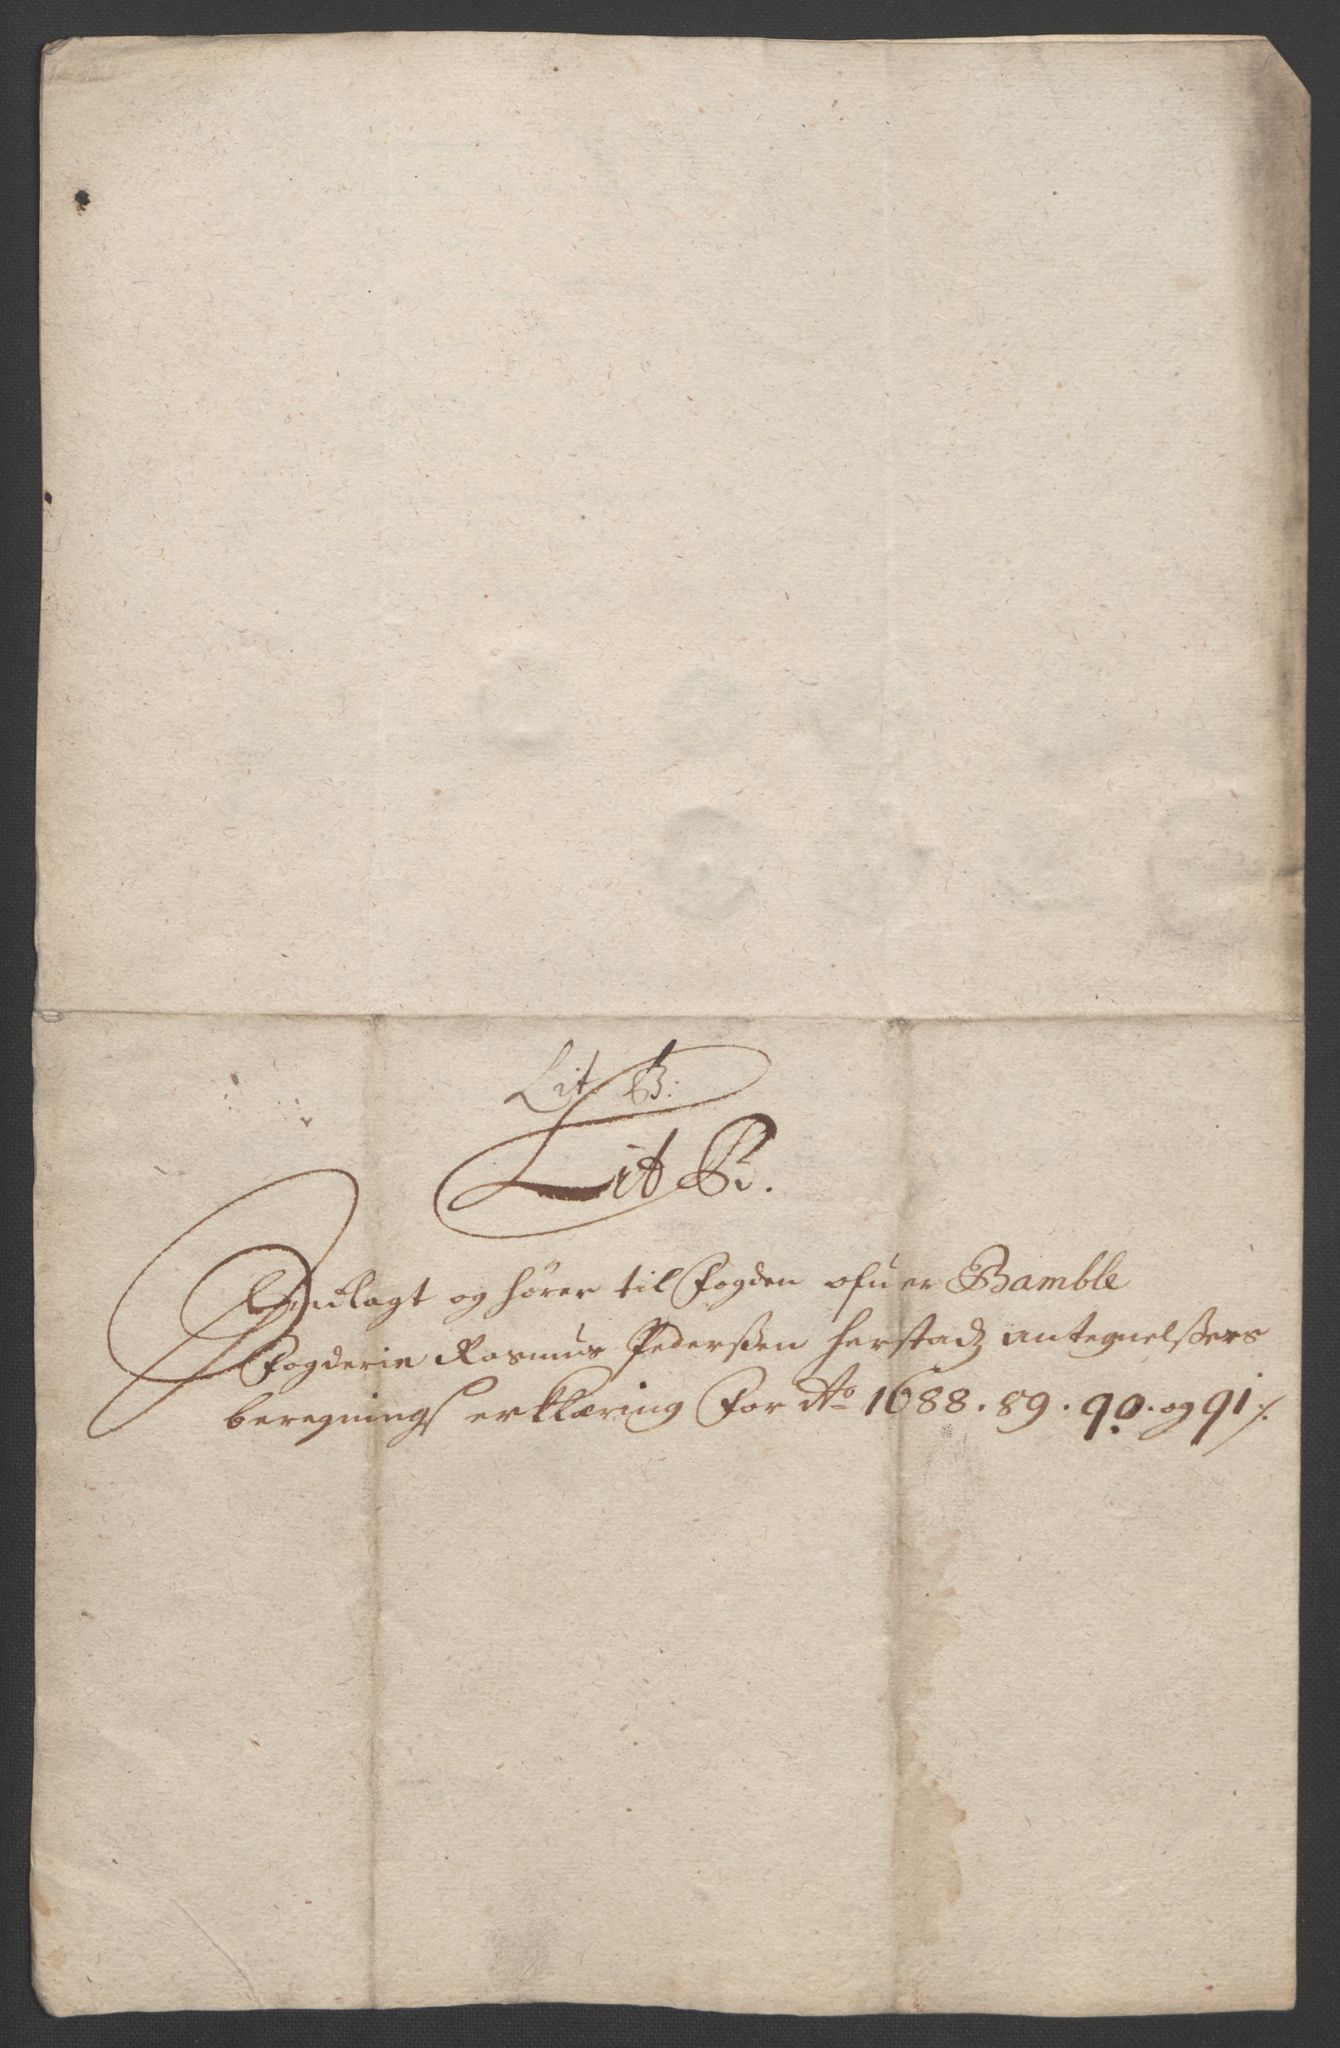 Lit. B.
Lit B.
Indlagt og hører til Fogden ofuer Bamble
Fogderie Rasmus Pederßen herstadz antegnelßers
beregnings erklæring For Ao 1688. 89. 90. og 91 ⁒